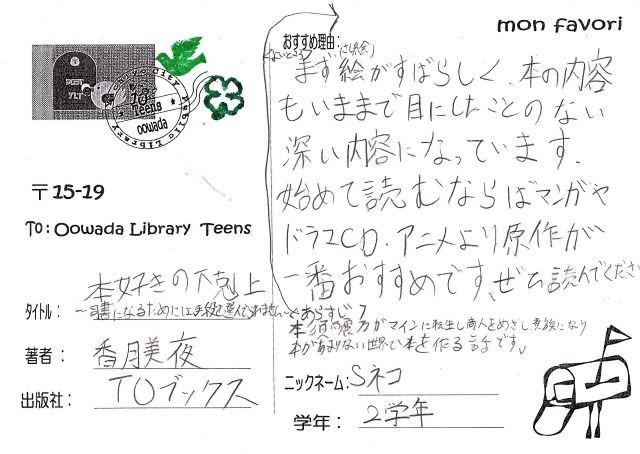 mon favori
Teens
Oowada
〒15-19
To: Oowada Library Teens
タイトル:
本好きの下剋上
~司書になるためには手段を選んでられません~
著者:
香月美夜
出版社:
TOブックス
おすすめ理由:
(さし絵)
まず絵がすばらしく、本の内容
もいままで目にしたことのない
深い内容になっています。
始めて読むならばマンガや
ドラマCD、アニメより原作が
一番おすすめです、ぜひ読んでください
あらすじ
本須麗乃がマインに転生し商人をめざし貴族になり
本があまりない世界で本を作る話です。
ニックネーム:
Sネコ
学年:
2学年